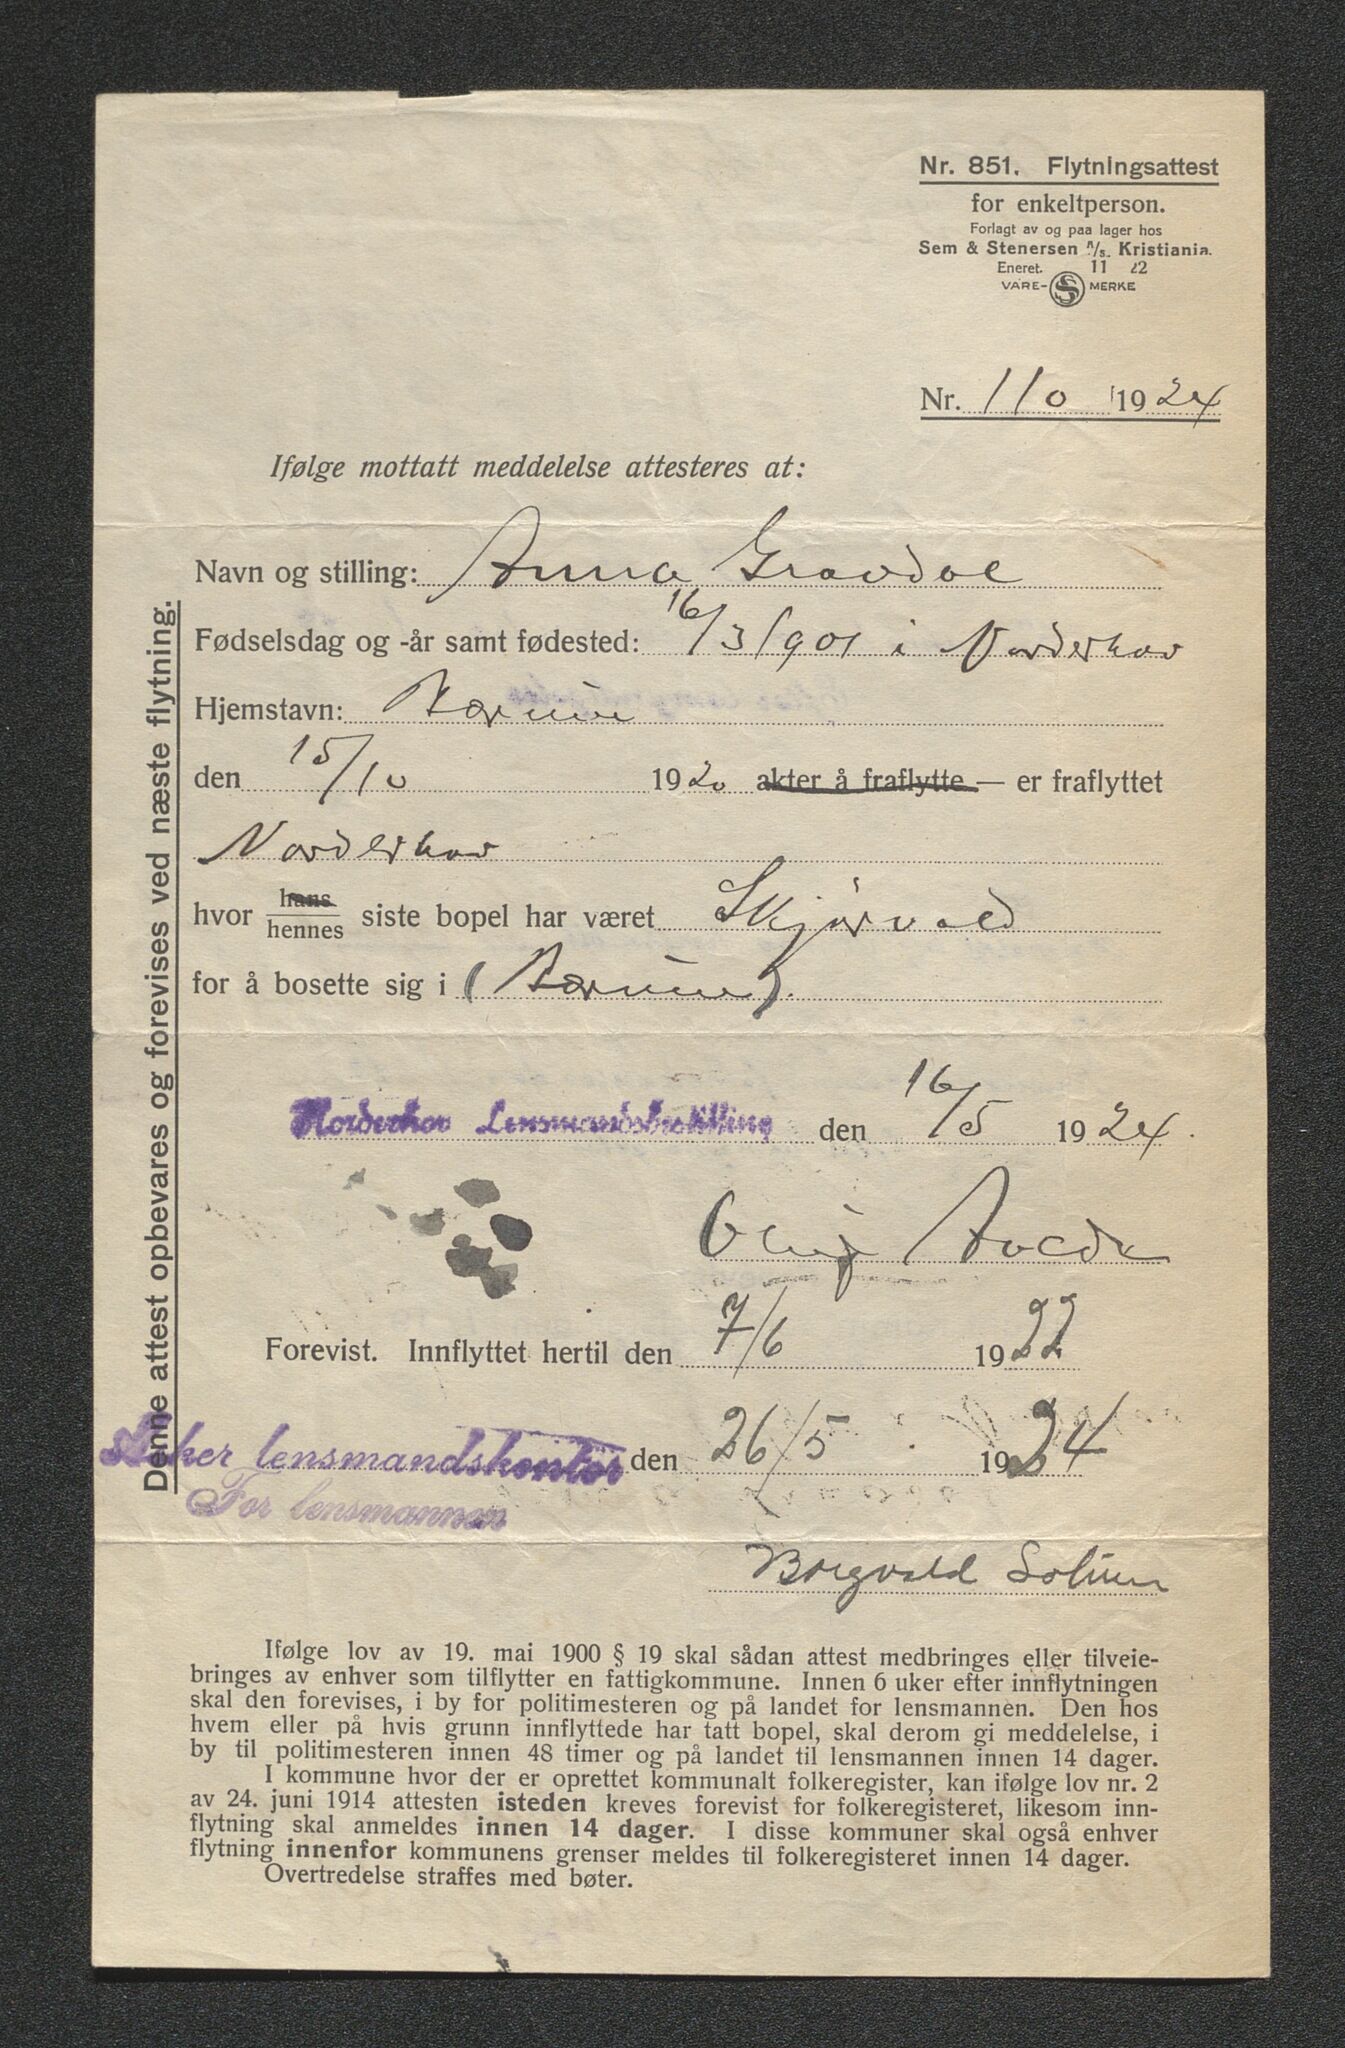 Nr. 851. Flytningsattest
for enkeltperson.
Forlagt av og paa lager hos
Sem & Stenersen A/s. Kristiania.
Eneret. 11 22
VARE- S MERKE
Nr. 110 1924
Ifølge mottatt meddelelse attesteres at:
Navn og stilling: Anna Gravdal
Fødselsdag og -år samt fødested: 16/3 1901 i Norderhov
Hjemstavn: Bærum
den 15/10 1920 akter å fraflytte — er fraflyttet
Norderhov
hvor hans/hennes siste bopel har været Skjørvold
for å bosette sig i (Bærum).
Norderhov Lensmandsbestilling den 16/5 1924.
Forevist. Innflyttet hertil den 7/6 1922
Aker lensmandskontor den 26/5 1924
For lensmannen
Borgvald Solum
Ifølge lov av 19. mai 1900 § 19 skal sådan attest medbringes eller tilveie-
bringes av enhver som tilflytter en fattigkommune. Innen 6 uker efter innflytningen
skal den forevises, i by for politimesteren og på landet for lensmannen. Den hos
hvem eller på hvis grunn innflyttede har tatt bopel, skal derom gi meddelelse, i
by til politimesteren innen 48 timer og på landet til lensmannen innen 14 dager.
I kommune hvor der er oprettet kommunalt folkeregister, kan ifølge lov nr. 2
av 24. juni 1914 attesten isteden kreves forevist for folkeregisteret, likesom inn-
flytning skal anmeldes innen 14 dager. I disse kommuner skal også enhver
flytning innenfor kommunens grenser meldes til folkeregisteret innen 14 dager.
Overtredelse straffes med bøter.
Denne attest opbevares og forevises ved næste flytning.